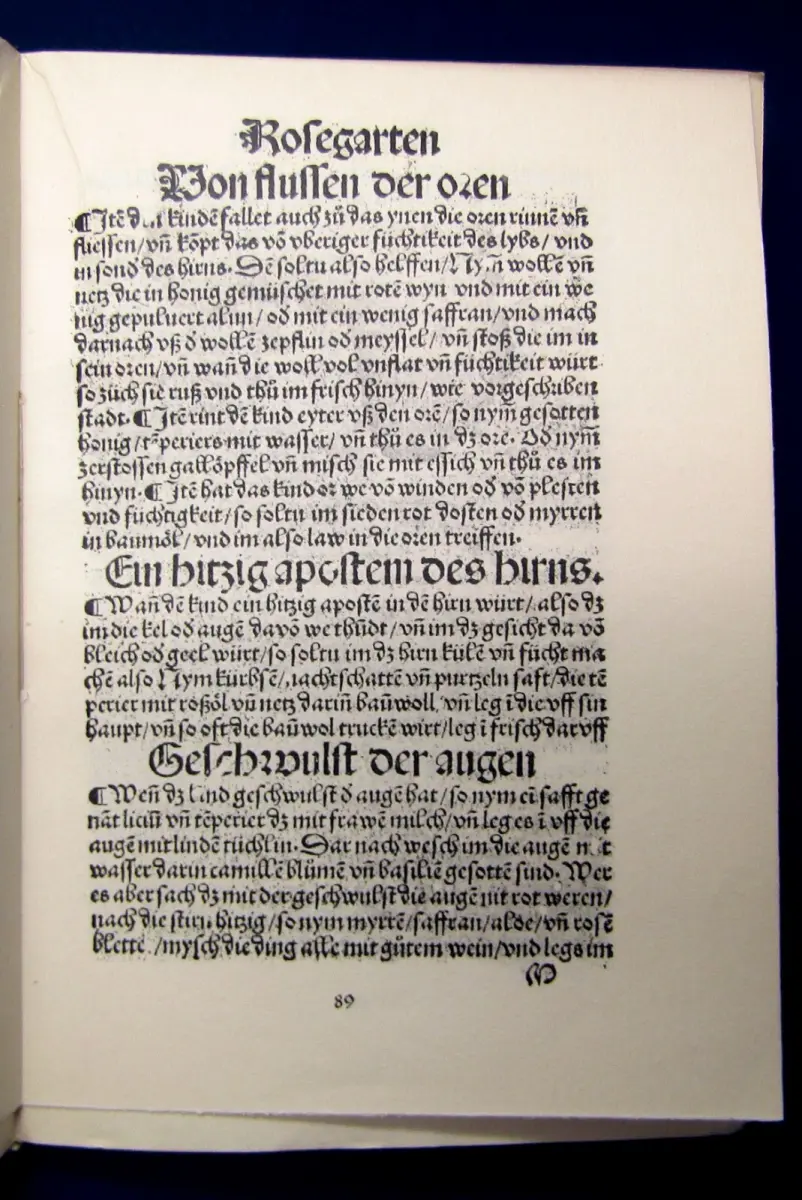 Rosegarten
Von flussen der oren
¶ Itē kindē fallet auch zů das ynen die oren rinnē vñ
fliessen/vñ kōpt das vō vberiger füchtikeit des lybs/ vnd
in sond des hirns. Dē soltu also helffen/ wollē vñ
netz die in honig gemüschet mit rotē wyn vnd mit ein we
nig gepuluert alun/ od mit ein wenig saffran/vnd mach
darnach vß d wollē zepflin od meyssel/ vñ stoß die im in
sein oren/vñ wañ die woll vol vnflat vñ füchtikeit würt
so züch sie ruß vnd thů im frisch hinyn/wie vorgeschriben
stadt. ¶ Itē rint dē kind eyter vß den orē/so nym̄ gesotten
honig/ tēperiers mit wasser/ vñ thů es in dz ore. Od nym̄
zerstossen gallöpffel vñ misch sie mit essich vñ thů es im
hinyn. ¶ Itē hat das kind or we vō winden od vō plesten
vnd füchtigkeit/so soltu im sieden rot dosten od myrren
in baumöl/vnd im also law in die oren treiffen.
Ein hitzig apostem des hirns.
¶ Wañ dē kind ein hitzig apostē in dē hirn würt/also dz
im die kel od augē davō we thůdt/vñ im dz gesicht da vō
bleich od geel würt/so soltu im dz hirn külē vñ fücht ma
chē also Nym kürbsē/nachtschattē vñ purtzeln saft/die tē
perier mit roßöl vñ netz dariñ baůwoll, vñ leg ī die vff sin
haupt/vñ so oft die baůwol truckē wirt/leg ī frisch daruff
Geschwulst der augen
¶ Weñ dz kind geschwulst d augē hat/so nym eī safft ge
nāt liciū vñ tēperier dz mit frawē milch/vñ leg es ī vff die
augē mit lindē tüchlin. Dar nach wesch im die augē
wasser darin camillē blůmē vñ basiliē gesottē sind. Wer
es aber sach dz mit der geschwulst die augē nit rot weren/
nach die stirn hitzig/so nym myrrē/saffran/aloe/vñ rosē
blette /mysch die ding alle mit gůtem wein/vnd legs im
M
89